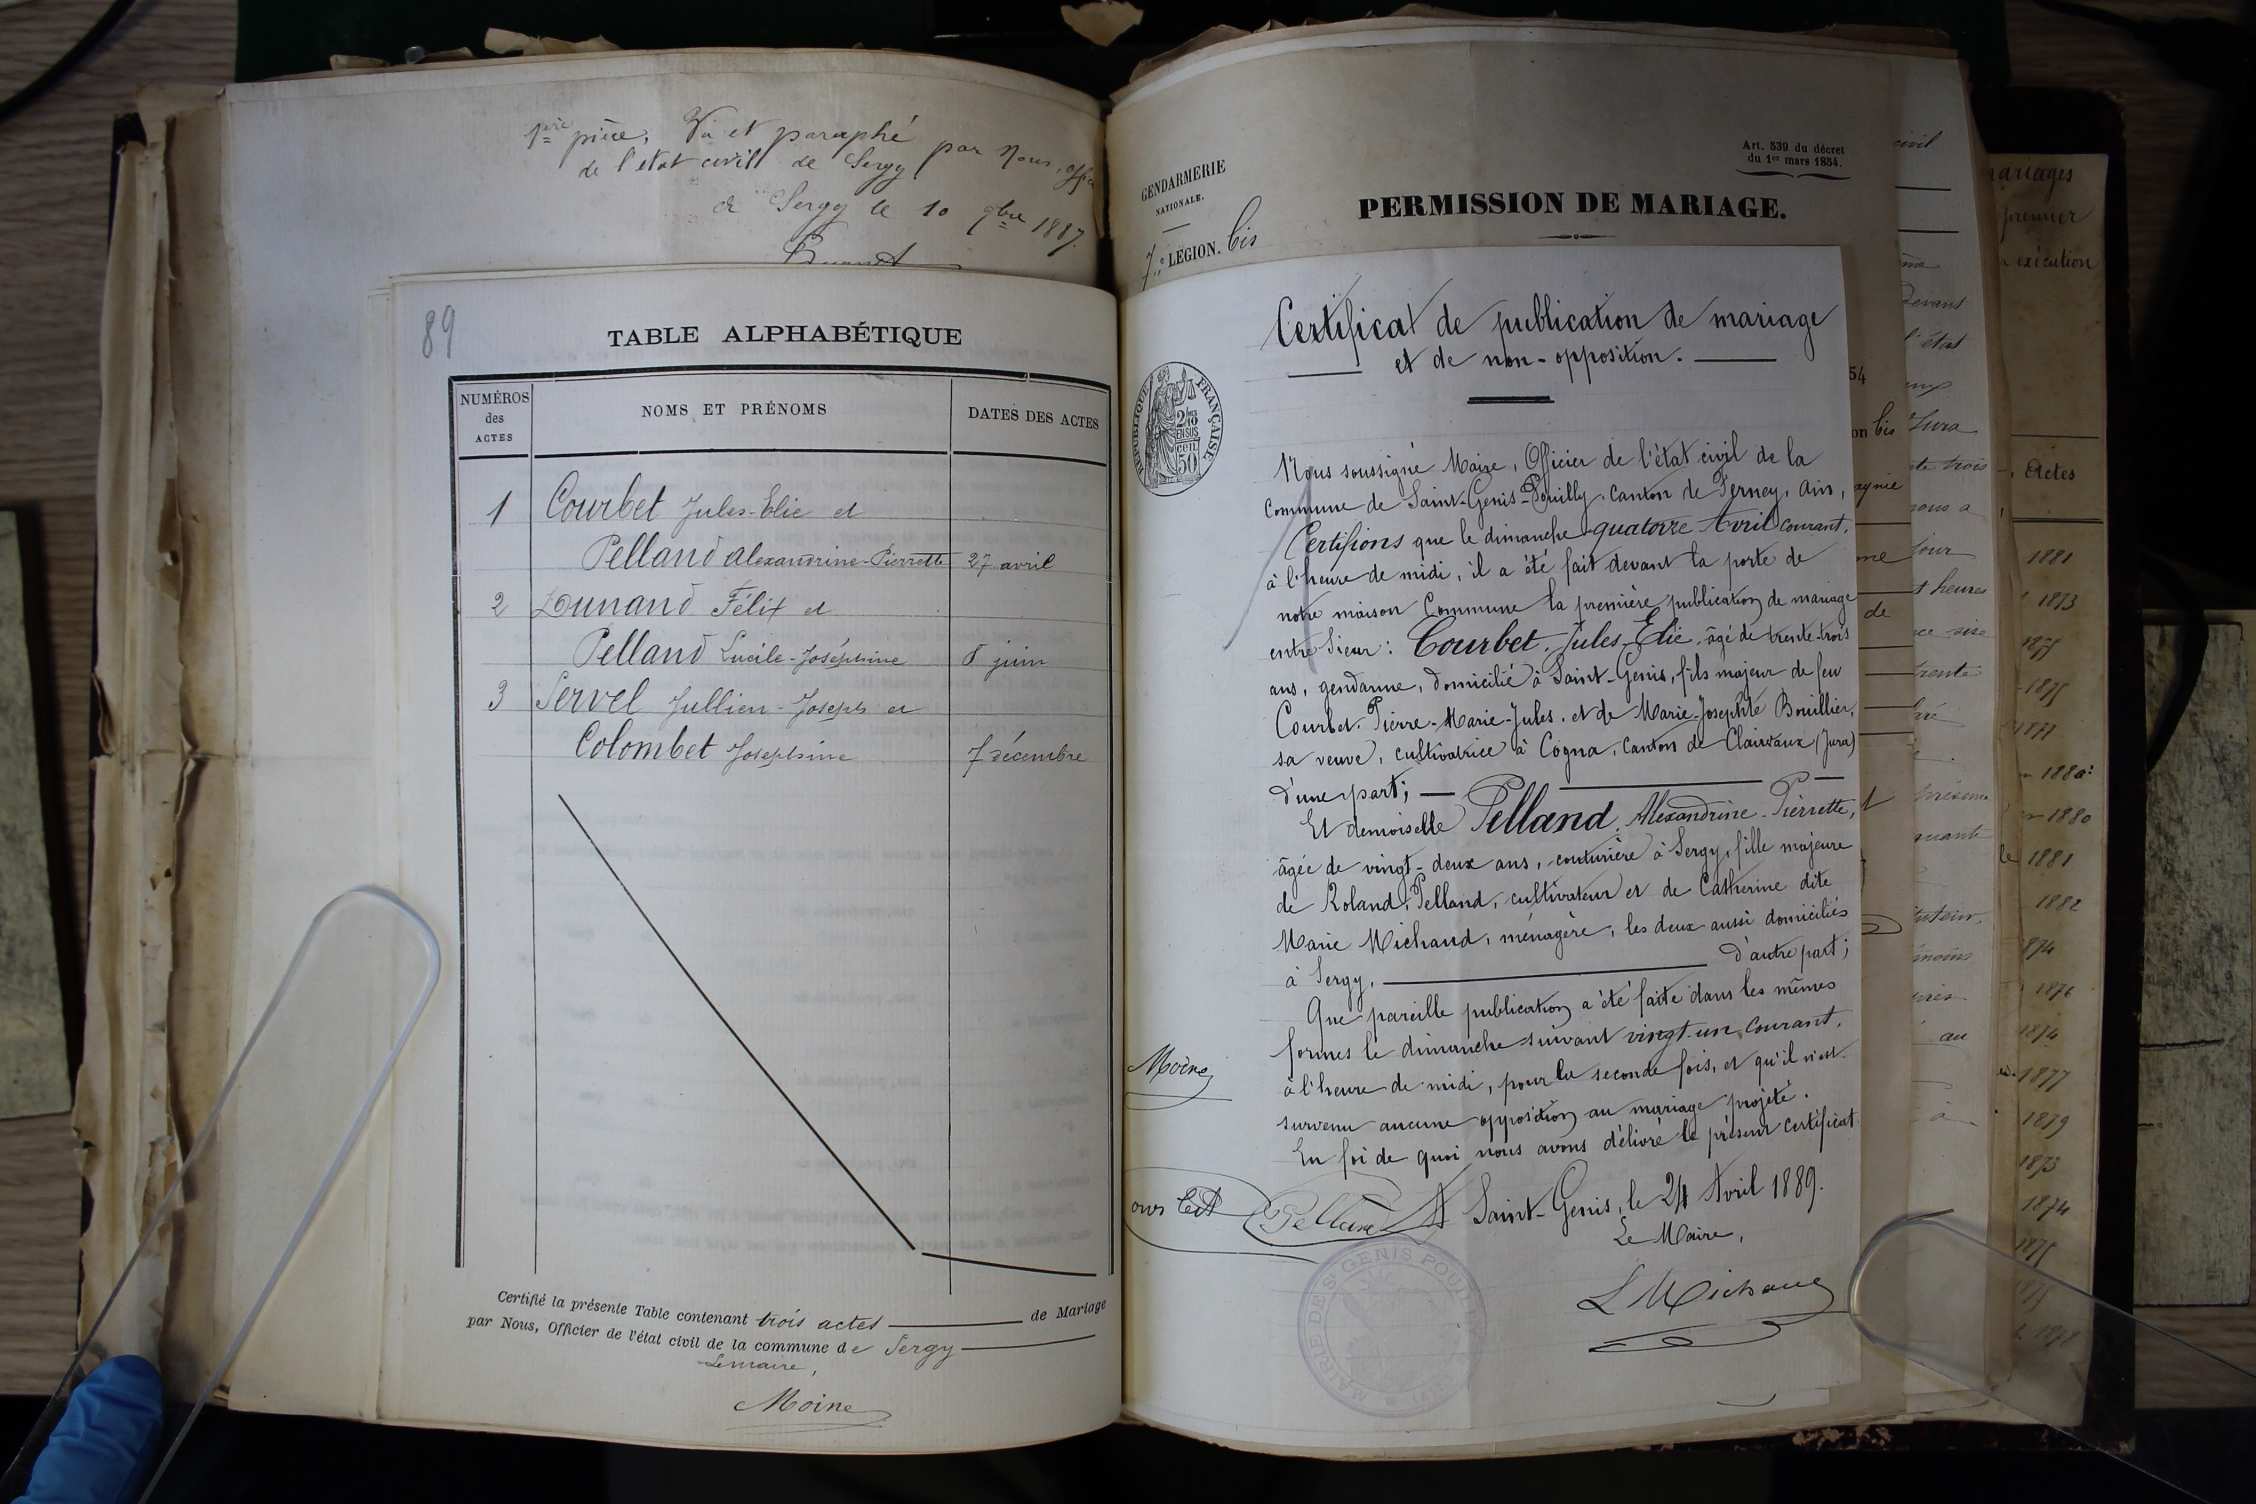 1ère pièce, Vu et paraphé par nous, offi
de l'état civil de Sergy
à Sergy le 10 9bre 1887.
89
TABLE ALPHABÉTIQUE
NUMÉROS des ACTES
NOMS ET PRÉNOMS
DATES DES ACTES
1 Courbet Jules-Elie et
Pelland Alexandrine-Pierrette 27 avril
2 Dunand Félix et
Pelland Lucile-Joséphine 8 juin
3 Servel Jullien-Joseph et
Colombet Josephine 7 décembre
Certifié la présente Table contenant trois actes de Mariage
par Nous, Officier de l'état civil de la commune de Sergy
Le maire,
Moine
GENDARMERIE
NATIONALE.
7e LÉGION. bis
Art. 539 du décret
du 1er mars 1854.
PERMISSION DE MARIAGE.
Certificat de publication de mariage
et de non-opposition.
RÉPUBLIQUE FRANÇAISE
2/10
EN SUS
50
Nous soussigné Maire, Officier de l'état civil de la
commune de Saint-Genis-Pouilly, canton de Ferney, Ain,
Certifions que le dimanche quatorze Avril courant,
à l'heure de midi, il a été fait devant la porte de
notre maison Commune la première publication de mariage
entre Sieur : Courbet, Jules-Elie, âgé de trente-trois
ans, gendarme, domicilié à Saint-Genis, fils majeur de feu
Courbet, Pierre-Marie-Jules, et de Marie-Josephte Bouillier,
sa veuve, cultivatrice à Cogna, canton de Clairvaux (Jura)
d'une part;
Et demoiselle Pelland, Alexandrine-Pierrette,
âgée de vingt-deux ans, couturière à Sergy, fille majeure
de Roland Pelland, cultivateur et de Catherine dite
Marie Michaud, ménagère, les deux aussi domiciliés
à Sergy, d'autre part;
Que pareille publication a été faite dans les mêmes
formes le dimanche suivant vingt-un courant,
à l'heure de midi, pour la seconde fois, et qu'il n'est
survenu aucune opposition au mariage projeté.
En foi de quoi nous avons délivré le présent certificat
Moine
Pelland A Saint-Genis, le 24 Avril 1889.
Le Maire,
L Michaud
MAIRIE DE ST GENIS POUILLY
civil
devant
l'état
54
on bis
Jura
trois
jour
heures
de
trente
au
à
mariages
premier
exécution
Actes
1881
1873
1875
1877
1880
1881
1882
1874
1876
1874
1877
1879
1873
1874